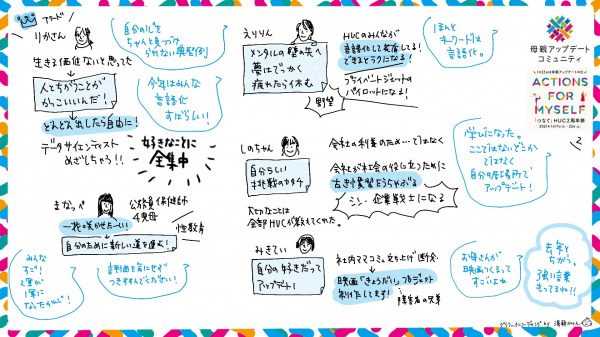 りかさん
生きる価値ないと思ってた
人とちがうことが
かっこいいんだ!
どんどん出したら自由に!
データサイエンティスト
めざしちゃう!!
自分の"心"を
ちゃんと見つづけ
今年はみんな
言語化
すばらしい!
好きなことに
全集中
えりりん
メンタルの壁の先へ
夢はでっかく
疲れたらイネむ
野望
HUCのみんなが
言語化して発信してる!
できるようになる!
プライベートジェットの
パイロットになる!
ほんと
キーワードは
言語化。
母親アップデート
コミュニティ
ACTIONS
FOR
MYSELF
「つなぐ」HUC2周年祭
しのちゃん
自分らしい
挑戦のカタチ
会社の利益のため…ではなく
会社が社会の役に立つために
古き慣習をうちやぶる
シン・企業戦士になる
大切なことは
全部HUCが教えてくれた。
学びになった。
ここではないどこか
ではなく
自分の居る場所で、
アップデート!
まなっぺ
公務員保健師
4児母
性教育
一花咲かせたーい
自分のために新しい道を進む!
みんな
すご!
評価を気にせず
つきすすんでください!
みきてぃ
自分の好きだって
アップデート!
社内ママコミュ立ち上げ
映画「きょうだい」プロジェクト
制作してます!
障害者の兄弟
お母さんが
映画つくるって
すごいよね
去年と
ちがう。
強い言葉
もってるね!!
グラフィックレコーディング by